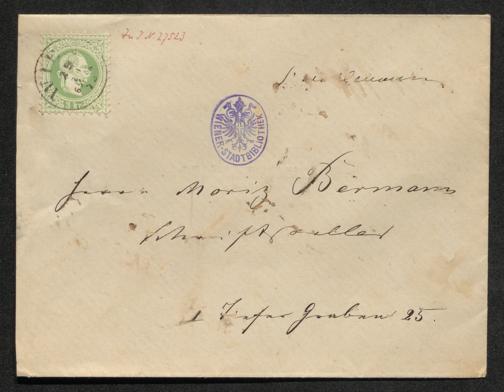 Zu J.N. 27523
WIENER-STADTBIBLIOTHEK
Herrn Moriz Bermann
Schriftsteller
1 Tiefer Graben 25.